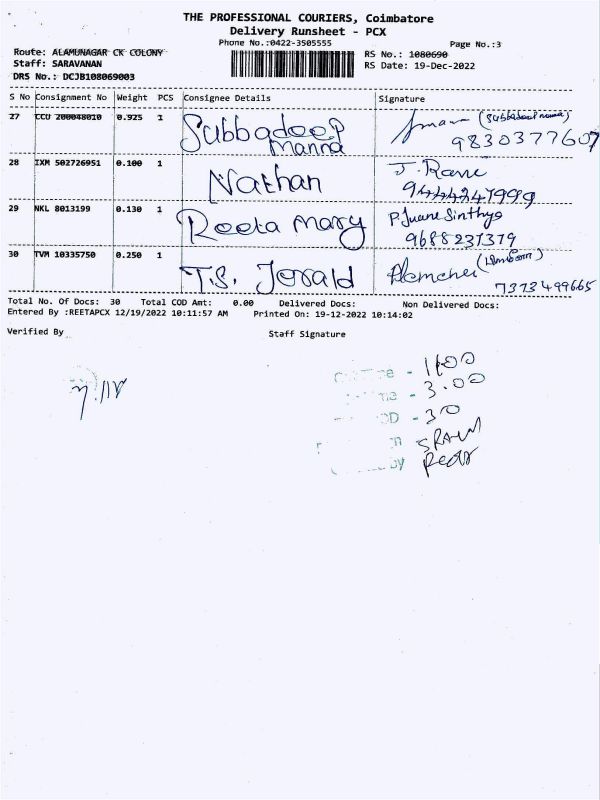 THE PROFESSIONAL COURIERS, Coimbatore
Delivery Runsheet - PCX
Phone No.:0422-3505555
Page No.:3
Route: ALAMUNAGAR CK COLONY
RS No.: 1080690
Staff: SARAVANAN
RS Date: 19-Dec-2022
DRS No.: DCJB108069003
S No Consignment No Weight PCS Consignee Details Signature
27 CCU 200048010 0.925 1 Subbadeep Manna
9830377607
28 IXM 502726951 0.100 1 Nathan J. Rani
9444247999
29 NKL 8013199 0.130 1 Reeta Mary
9688237379
30 TVM 10335750 0.250 1 T.S. Jerald
7373499665
Total No. Of Docs: 30 Total COD Amt: 0.00 Delivered Docs: Non Delivered Docs:
Entered By :REETAPCX 12/19/2022 10:11:57 AM Printed On: 19-12-2022 10:14:02
Verified By Staff Signature
- 1100
- 3.00
- 30